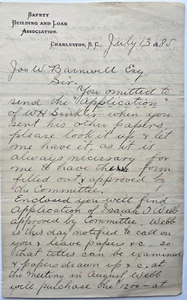 SAFETY
BUILDING AND LOAN
ASSOCIATION.
CHARLESTON, S.C. July 13 1885
Jos W Barnwell Esq
Sir.
You omitted to
send the application
of W H Sinkler when you
sent his other papers,
please look it up & let
me have it, as it is
always necessary for
me to have the form
filled out & approved by
the Committee.
Enclosed you will find
application of Isaiah Webb
approved by Committee, Webb
is this day notified to call on
you & leave papers &c. so
that titles can be examined
& papers drawn up &c. at
the meeting in August Webb
will purchase the $200 at